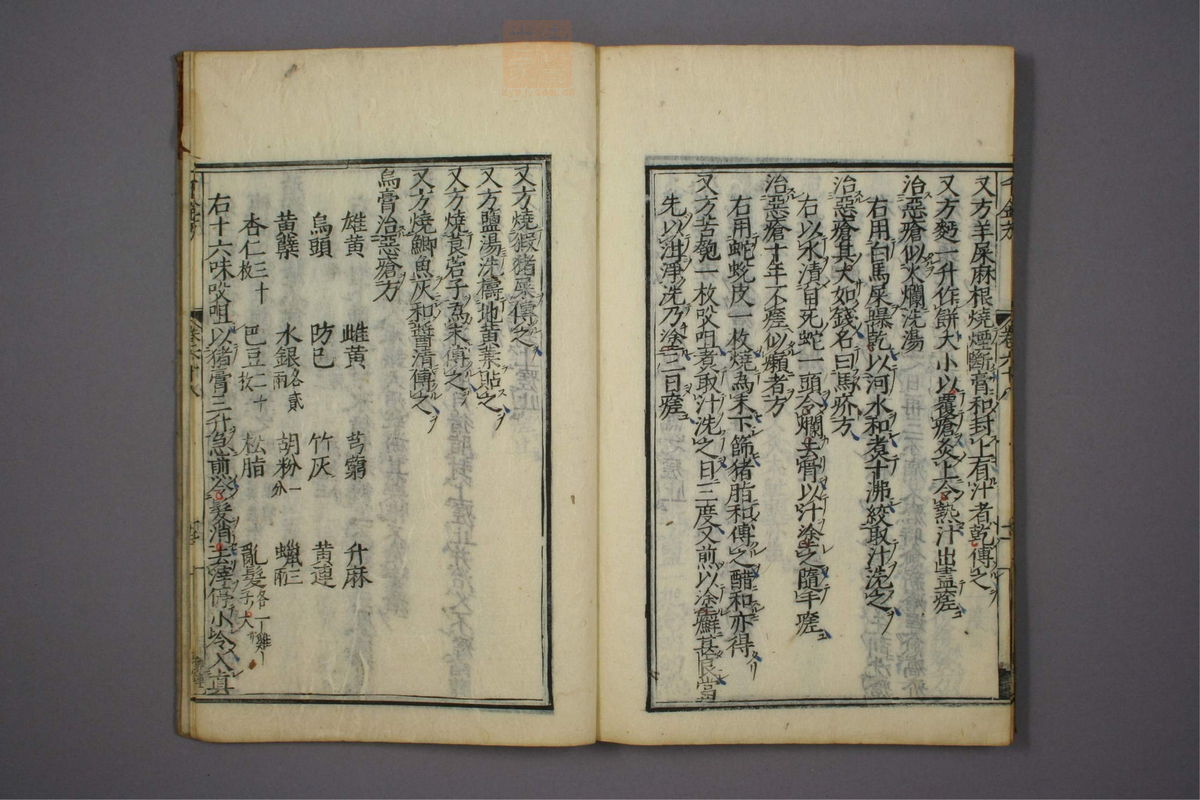 又方羊屎麻根燒煙斷膏和封上有汁者乾傅之
又方麫一升作餅大小以覆瘡灸上令熱汁出盡瘥
治惡瘡似火爛洗湯
右用白馬屎曝乾以河水和煮十沸絞取汁洗之
治惡瘡其大如錢名曰馬疥方
右以水漬自死蛇一頭令爛去骨以汁塗之隨手瘥
治惡瘡十年不瘥似癩者方
右用蛇蛻皮一枚燒為末下篩猪脂和傅之醋和亦得
又方苦瓠一枚㕮咀煮取汁洗之日三度又煎以塗癬甚良當
先以泔淨洗乃塗三日瘥
又方燒猳猪屎傅之
又方鹽湯洗擣地黃葉貼之
又方燒莨菪子為末傅之
又方燒鯽魚灰和醬清傅之
烏膏治惡瘡方
雄黃 雌黃 芎藭 升麻
烏頭 防己 竹灰 黃連
黃蘗 水銀各貳兩 胡粉一分 蠟三兩
杏仁三十枚 巴豆二十枚 松脂 亂髮各一雞子大
右十六味㕮咀以猪膏三升急煎令髮消去滓停小冷入真